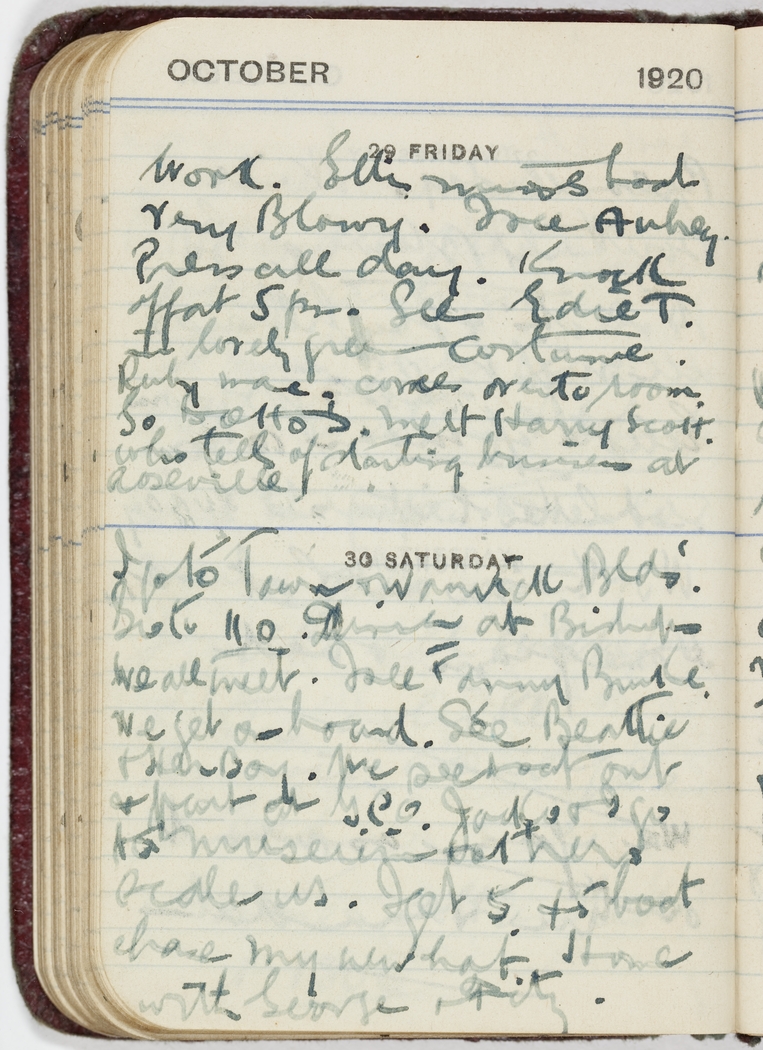 OCTOBER 1920
29 FRIDAY
Work. Ellis boat
very Blowy. I see Aubrey.
Press all day. Knock
off at 5 pm. See Edie T.
in lovely green costume.
Ruby mac. comes over to room.
So Meet Harry Scott.
who tells of starting business at
Roseville
30 SATURDAY
I go to Town Warwick Blds.
at
We all meet. I see Fanny Burke.
We get on board. See Beattie
+ Her Boy. We see boat out
+ part at G.P.O. Jack + I go
to museum + others
us. I get 5.45 boat
chase my new hat. Home
with George + Fitz.